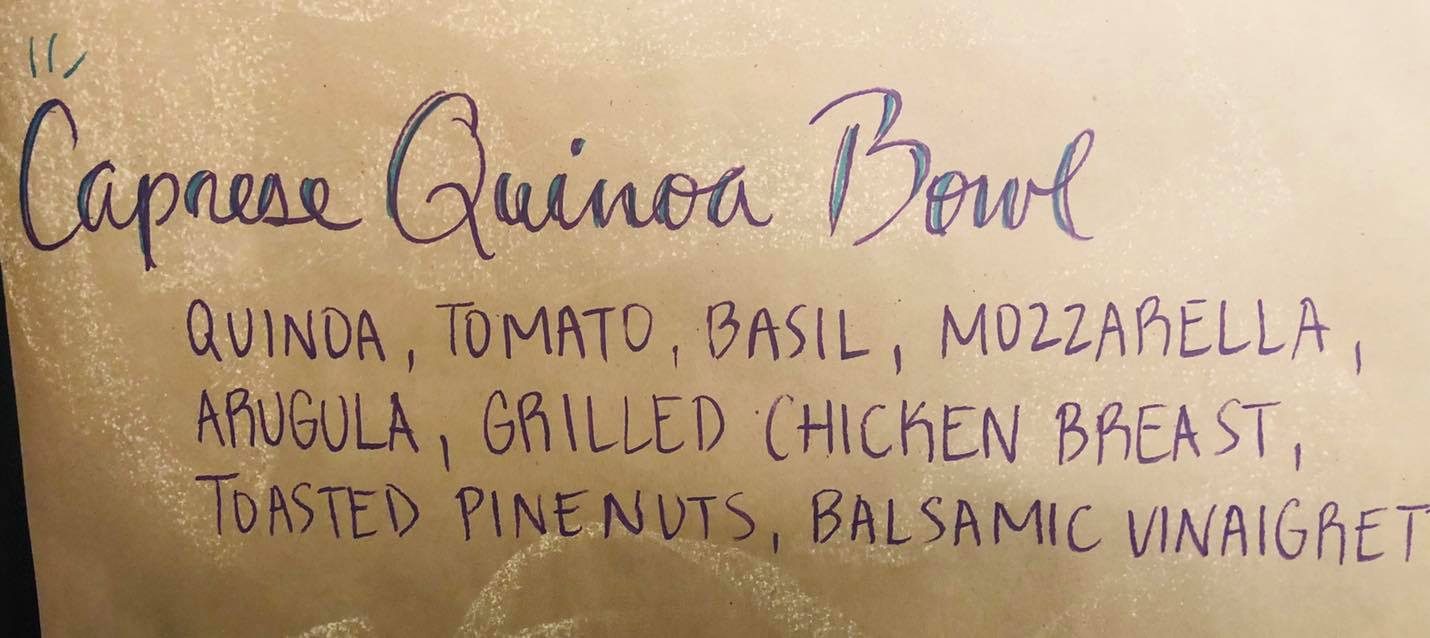 Caprese Quinoa Bowl
QUINOA, TOMATO, BASIL, MOZZARELLA,
ARUGULA, GRILLED CHICKEN BREAST,
TOASTED PINE NUTS, BALSAMIC VINAIGRET